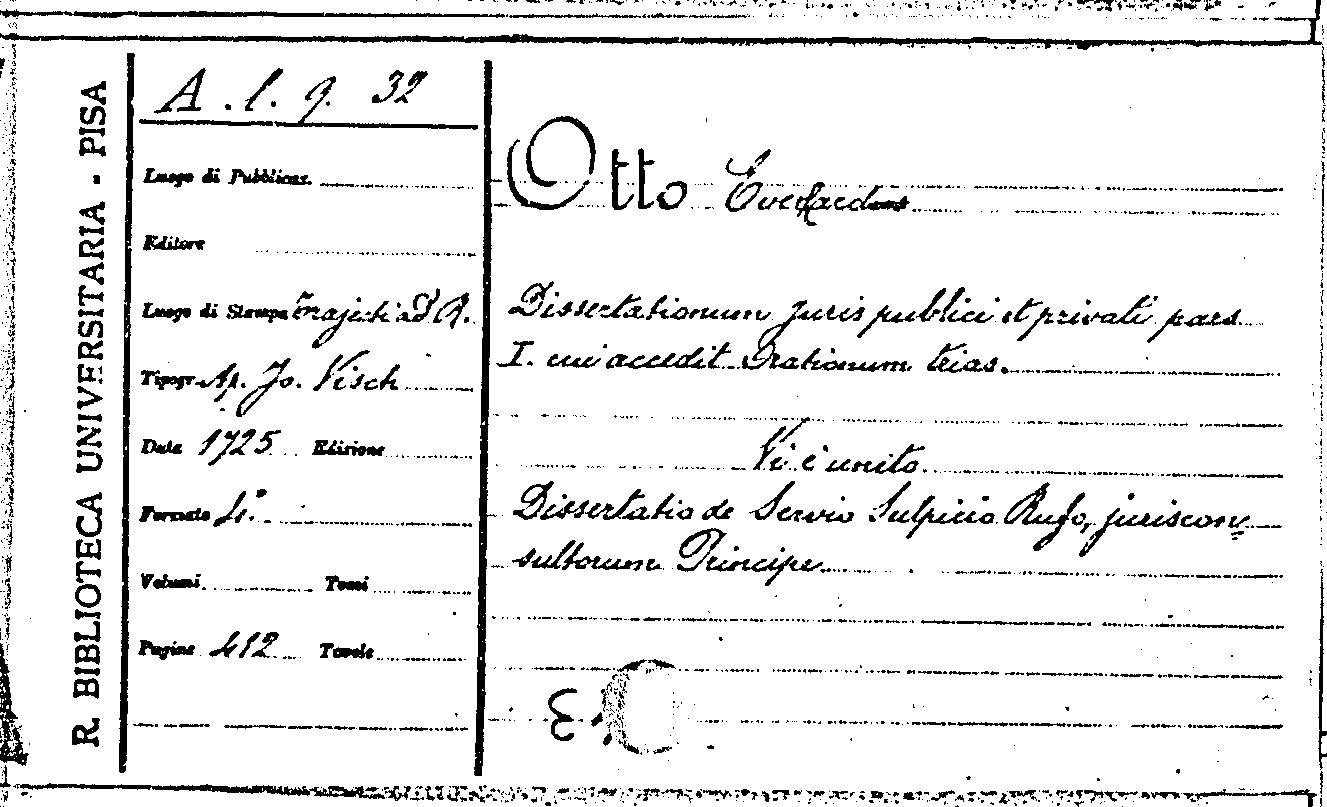 R. BIBLIOTECA UNIVERSITARIA - PISA
A. l. 9. 32
Luogo di Pubblicaz.
Editore
Luogo di Stampa Trajecti ad R.
Tipogr. Ap. Jo. Visch
Data 1725 Edizione
Formato 4.°
Volumi Tomi
Pagine 412 Tavole
Otto Everardus
Dissertationum juris publici et privati pars
I. cui accedit Orationum trias.
Vi è unito
Dissertatio de Servio Sulpicio Rufo, juriscon=
sultorum Principe